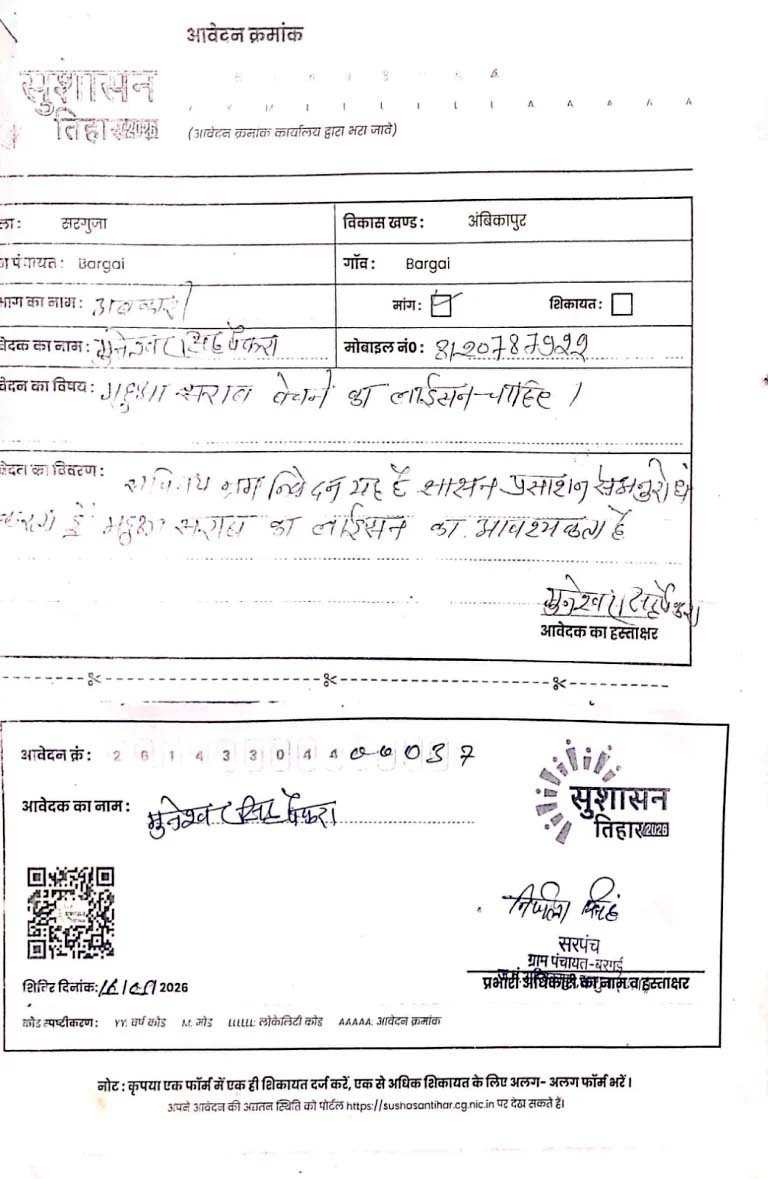 आवेदन क्रमांक
सुशासन
तिहार
(आवेदन क्रमांक कार्यालय द्वारा भरा जावे)
ला: सरगुजा विकास खण्ड: अंबिकापुर
पंचायत: Bargai गाँव: Bargai
भाग का नाम: आबकारी मांग: शिकायत:
वेदक का नाम: मुनेश्वर सिंह पैंकरा मोबाइल नं0: 8120787922
वेदन का विषय: महुआ सराब बेचने का लाईसन चाहिए।
वेदन का विवरण: सविनय नम्र निवेदन यह है शासन प्रसाशन से अनुरोध
है महुआ सराब का लाईसन का आवश्यकता है
मुनेश्वर सिंह पैंकरा
आवेदक का हस्ताक्षर
आवेदन क्रं: 2 6 1 4 3 3 0 4 4 0 0 0 3 7
सुशासन
तिहार 2026
आवेदक का नाम: मुनेश्वर सिंह पैंकरा
सिंह
सरपंच
ग्राम पंचायत-बरगई
प्रभारी अधिकारी का नाम व हस्ताक्षर
शिविर दिनांक: 2026
कोड स्पष्टीकरण: YY: वर्ष कोड M: मोड LLLLLL: लोकेलिटी कोड AAAAA: आवेदन क्रमांक
नोट : कृपया एक फॉर्म में एक ही शिकायत दर्ज करें, एक से अधिक शिकायत के लिए अलग- अलग फॉर्म भरें।
अपने आवेदन की अद्यतन स्थिति को पोर्टल https://sushasantihar.cg.nic.in पर देख सकते हैं।